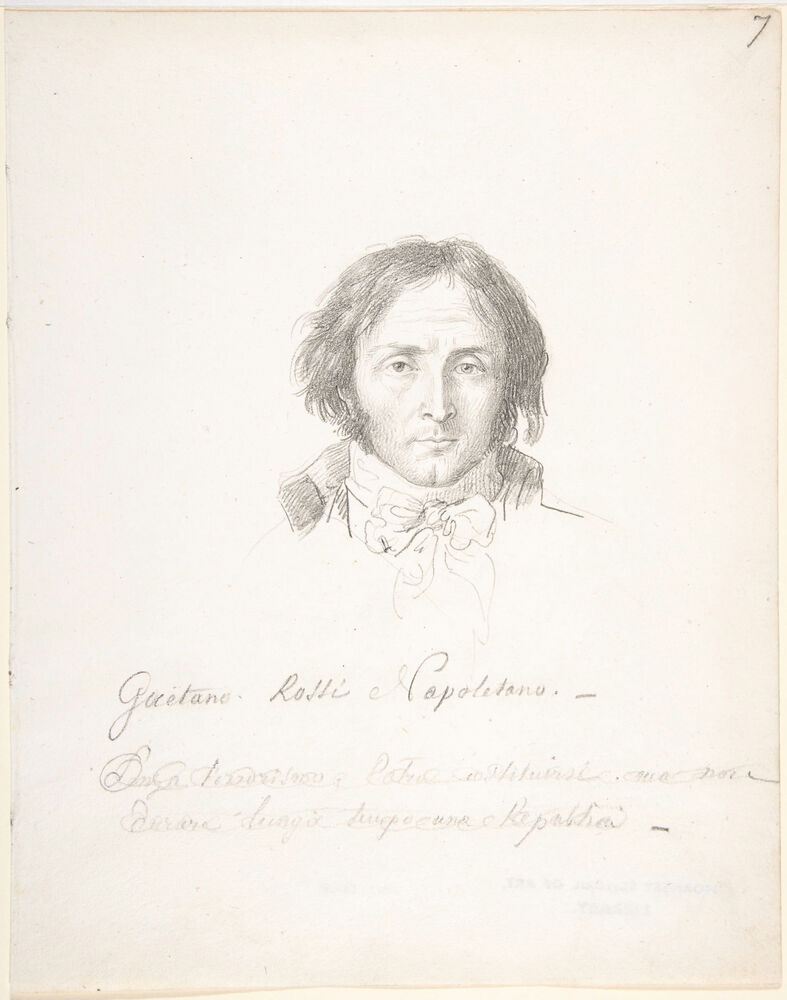 7
Gaetano Rossi Napoletano. —
potrà costituirsi. ma non
durare lungo tempo una Republica —